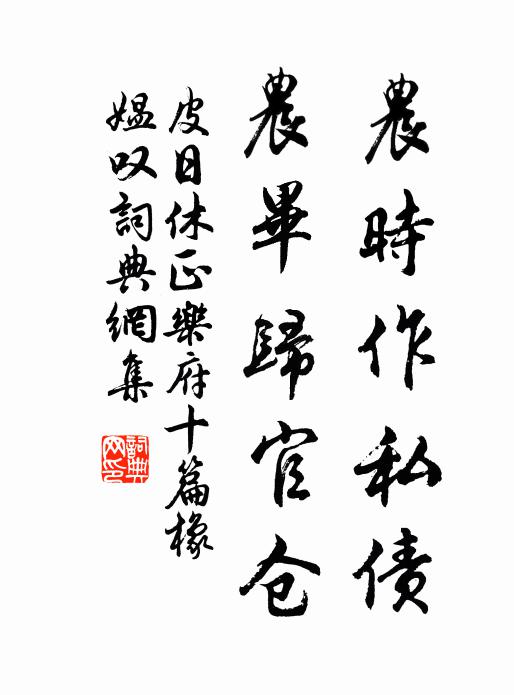 農時作私债
農畢歸官仓
皮日休正樂府十篇橡
媼叹詞典網集
詞典网印